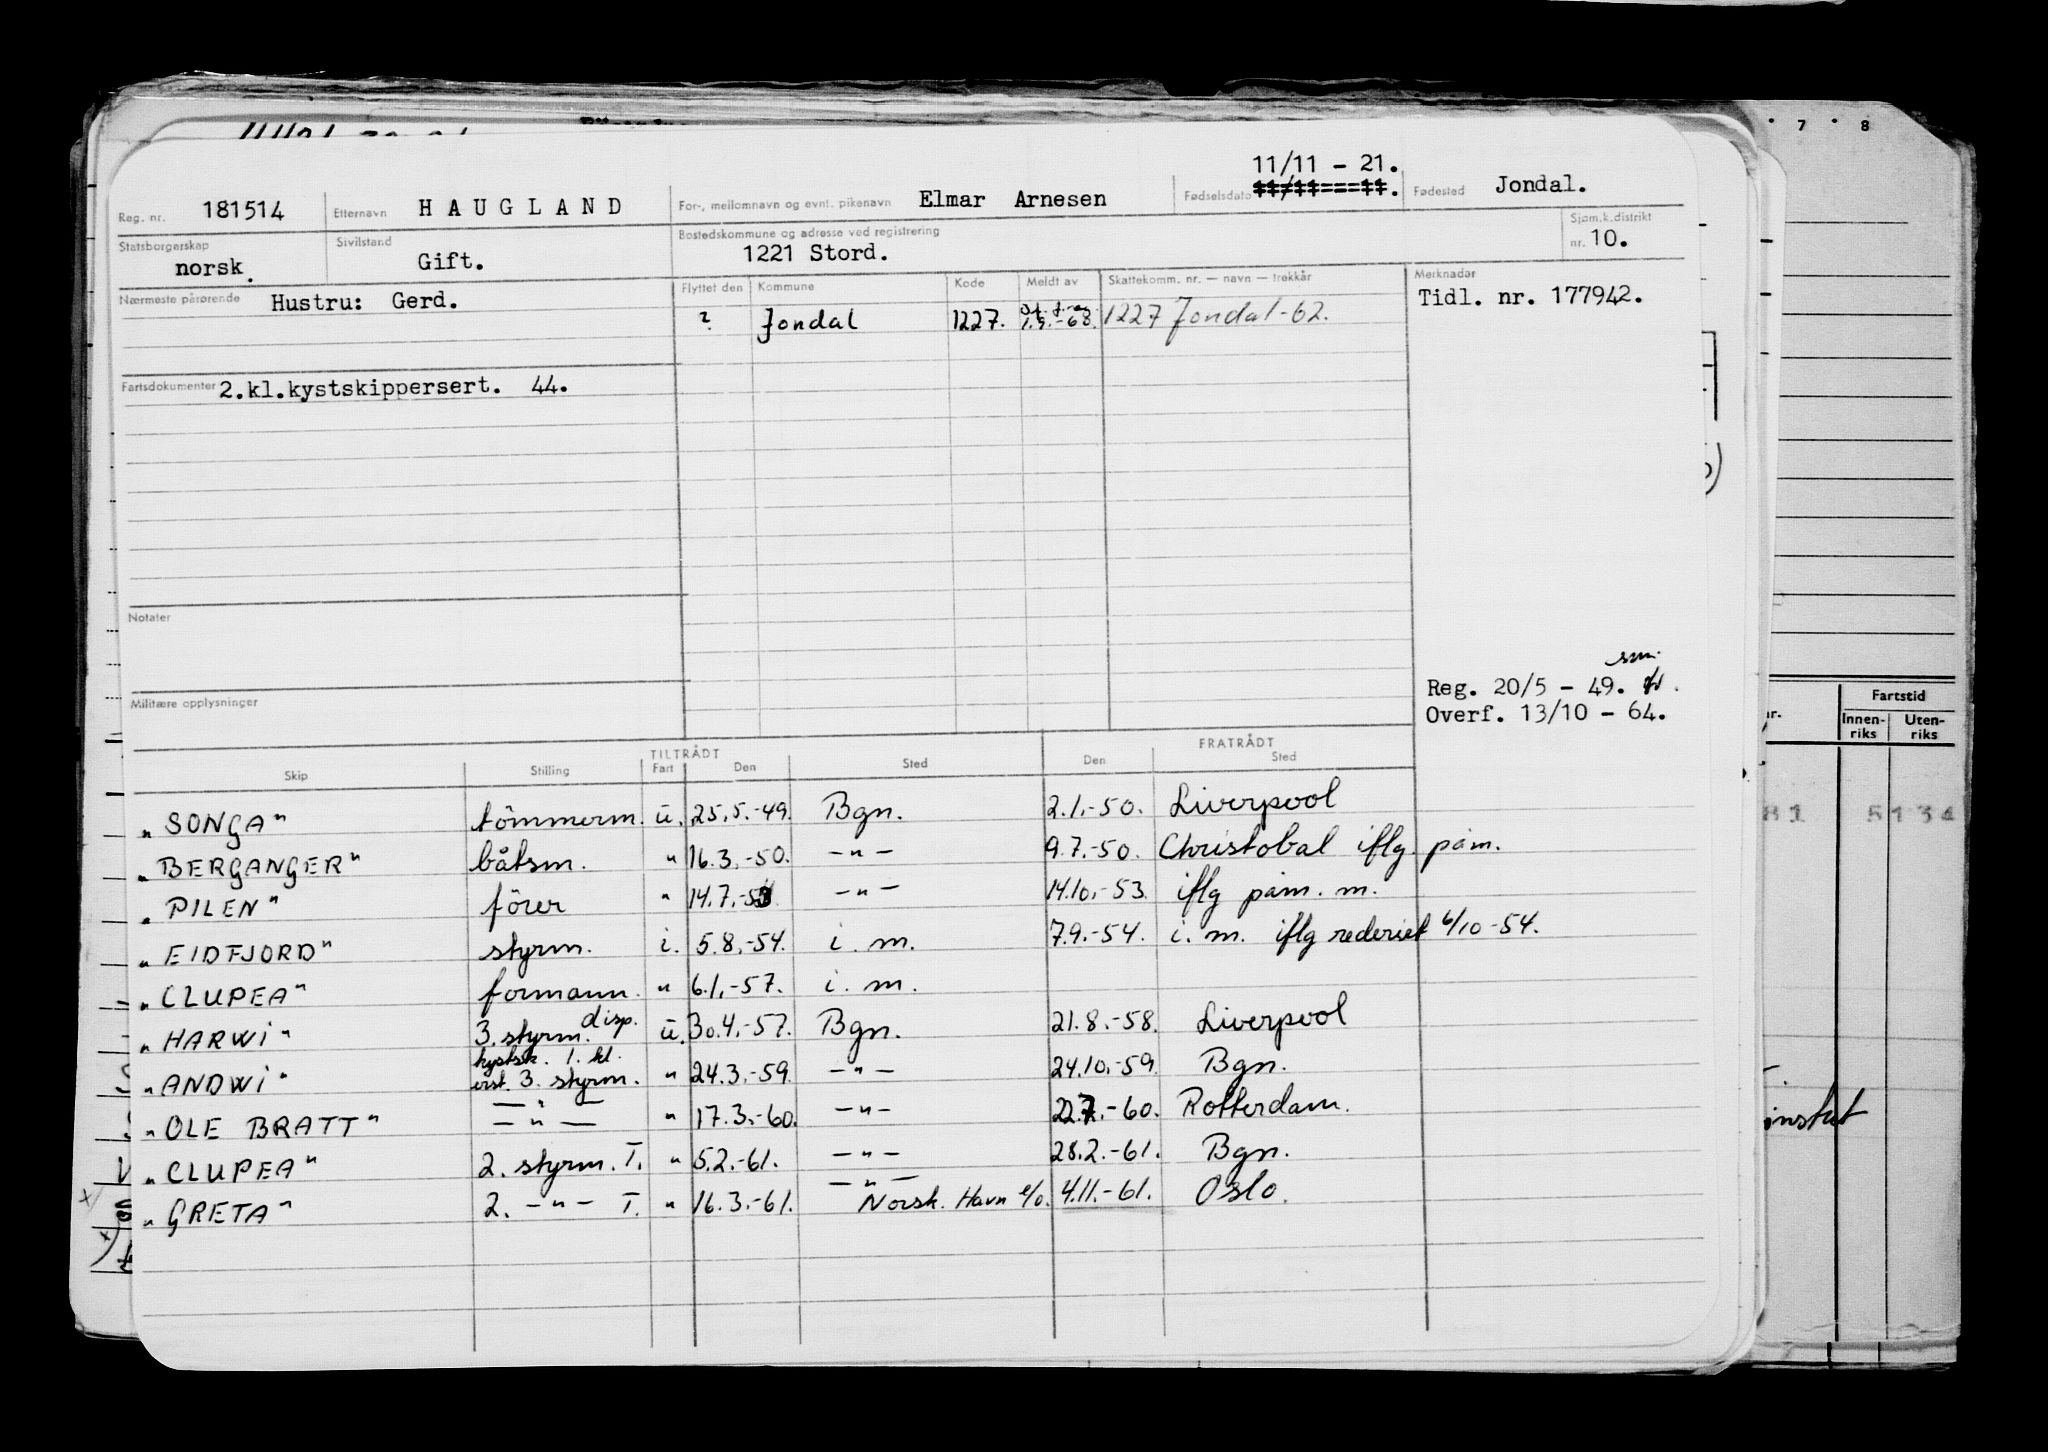 11/11 - 21.
Reg. nr. 181514 Etternavn HAUGLAND For-, mellomnavn og evnt. pikenavn Elmar Arnesen Fødselsdato Fødested Jondal.
Statsborgerskap norsk. Sivilstand Gift. Bostedskommune og adresse ved registrering 1221 Stord. Sjøm.k.distrikt nr. 10.
Nærmeste pårørende Hustru: Gerd. Flyttet den Kommune Kode Meldt av Skattekomm. nr. — navn — trekkår Merknader
Tidl. nr. 177942.
? Jondal 1227. -68. 1227 Jondal-62.
Fartsdokumenter 2.kl.kystskippersert. 44.
Notater
Militære opplysninger
sm.
Reg. 20/5 - 49.
Overf. 13/10 - 64.
TILTRÅDT FRATRÅDT
Skip Stilling Fart Den Sted Den Sted
"SONGA" tömmerm. u. 25.5.-49. Bgn. 2.1.-50. Liverpool
"BERGANGER" båtsm. " 16.3.-50. -"- 9.7.-50. Christobal iflg. påm.
"PILEN" förer " 14.7.-53. -"- 14.10.-53. iflg påm. m.
"EIDFJORD" styrm. i. 5.8.-54. i. m. 7.9.-54. i. m. iflg rederiet 6/10-54.
"CLUPEA" formann. " 6.1.-57. i. m.
"HARWI" 3. styrm. disp. u. 30.4.-57. Bgn. 21.8.-58. Liverpool
"ANDWI" kystsk. 1. kl. erst. 3. styrm. " 24.3.-59. -"- 24.10.-59. Bgn.
"OLE BRATT" -"- -"- " 17.3.-60. -"- 22.7.-60. Rotterdam.
"CLUPEA" 2. styrm. T. " 5.2.-61. -"- 28.2.-61. Bgn.
"GRETA" 2. -"- T. " 16.3.-61. -"- Norsk. Havn e/o. 4.11.-61. Oslo.
7 8
Fartstid
Innen-
riks
Uten-
riks
81 5134